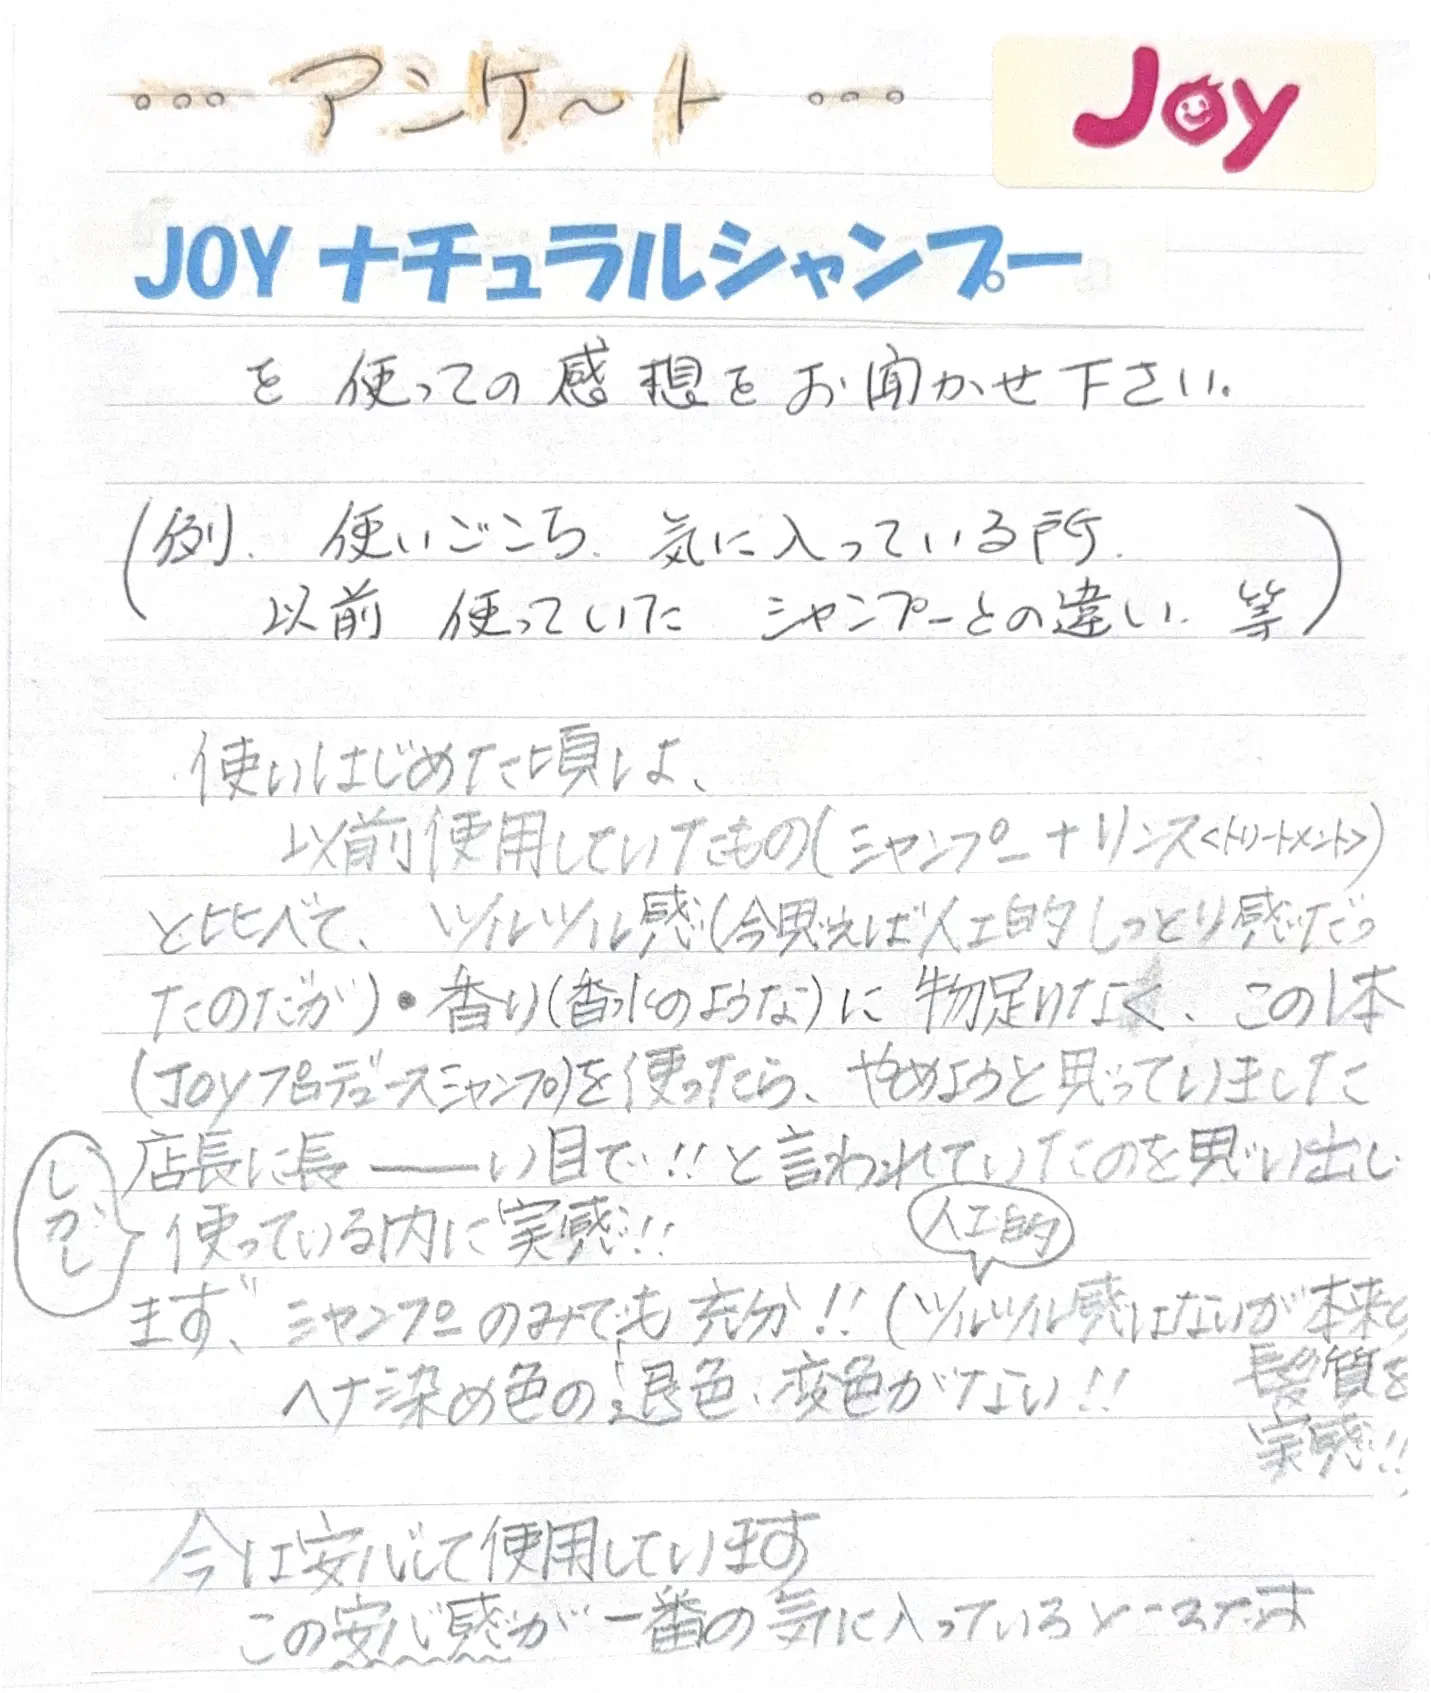 °°° アンケ〜ト °°°
Joy
JOY ナチュラルシャンプー
を 使っての 感想を お聞かせ下さい。
(例. 使いごこち. 気に入っている所.
以前 使っていた シャンプーとの違い. 等)
使いはじめた頃は、
以前使用していたもの(シャンプー+リンス<トリートメント>)
と比べて、ツルツル感(今思えば人工的しっとり感だっ
たのだが)・香り(香水のような)に物足りなく、この1本
(Joyプロデュースシャンプ)を使ったら、やめようと思っていました
しかし
店長に長――い目で!!と言われていたのを思い出し
使っている内に実感!!
人工的
まず、シャンプーのみでも充分!!(ツルツル感はないが本来の
髪質を
実感!!
ヘナ染め色の退色、変色がない!!
今は安心して使用しています
この安心感が一番の気に入っているところです